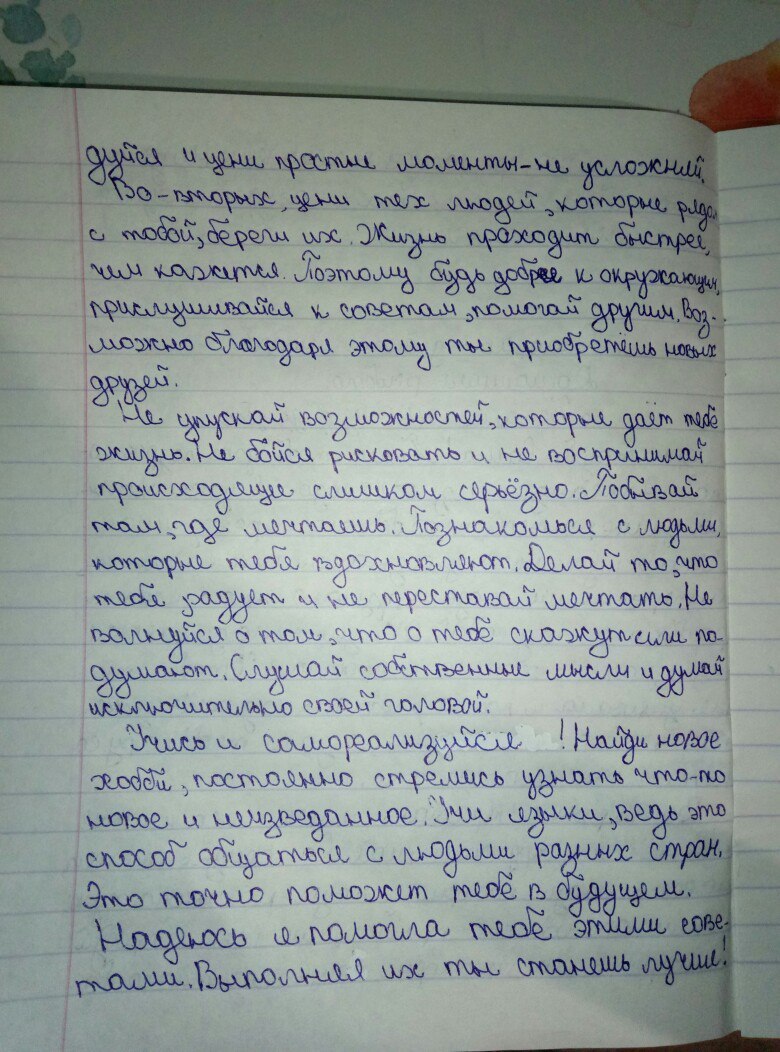 дуйся и цени простые моменты-не усложняй.
Во-вторых, цени тех людей, которые рядом
с тобой, береги их. Жизнь проходит быстрее,
чем кажется. Поэтому будь добрее к окружающим,
прислушивайся к советам, помогай другим. Воз-
можно благодаря этому ты приобретёшь новых
друзей.
Не упускай возможностей, которые даёт тебе
жизнь. Не бойся рисковать и не воспринимай
происходящие слишком серьёзно. Побывай
там, где мечтаешь. Познакомься с людьми,
которые тебя вдохновляют. Делай то, что
тебе радует и не переставай мечтать. Не
волнуйся о том, что о тебе скажут или по-
думают. Слушай собственные мысли и думай
исключительно своей головой.
Учись и самореализуйся ! Найди новое
хобби, постоянно стремись узнать что-то
новое и неизведанное. Учи языки, ведь это
способ общаться с людьми разных стран.
Это точно поможет тебе в будущем.
Надеюсь я помогла тебе этими сове-
тами. Выполняя их ты станешь лучше!